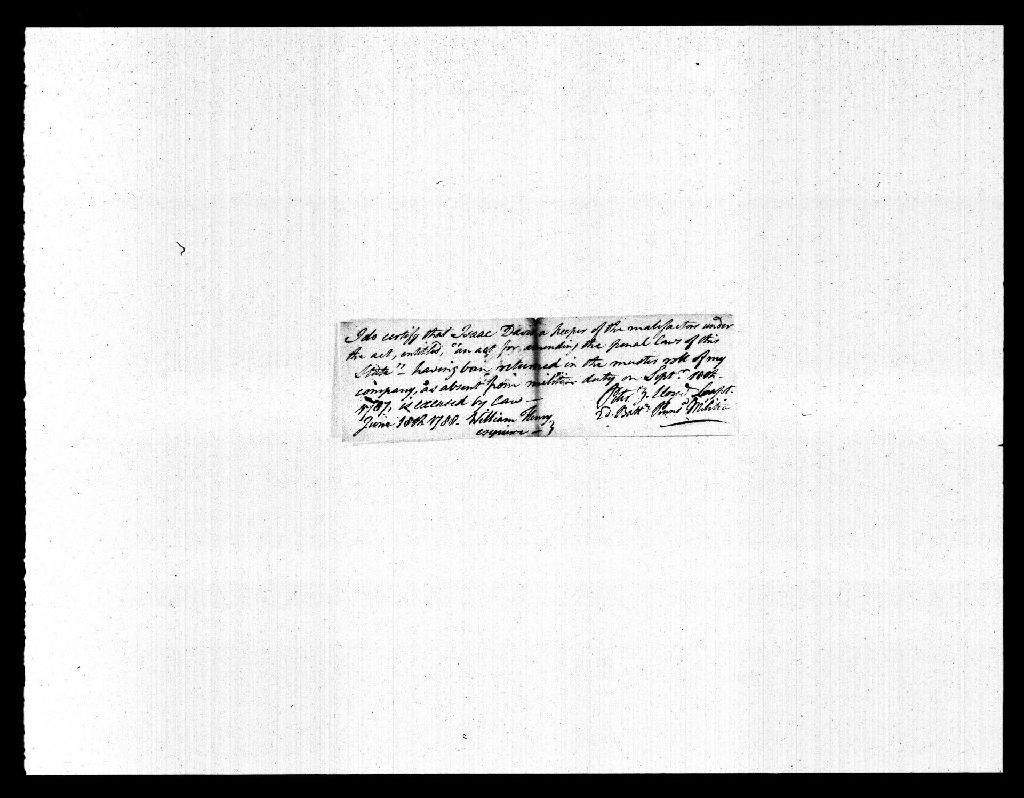 I do certify that Isaac Davis a keeper of the malefactors under
the act, entitled, "an act for amending the penal laws of this
State" – having been returned in the muster roll of my
company, as absent from militia duty on Septr. 18th
1787, is excused by law –
June 18th 1788. William Henry,
esquire –
Lloyd Compt.
2d. Batt. Militia